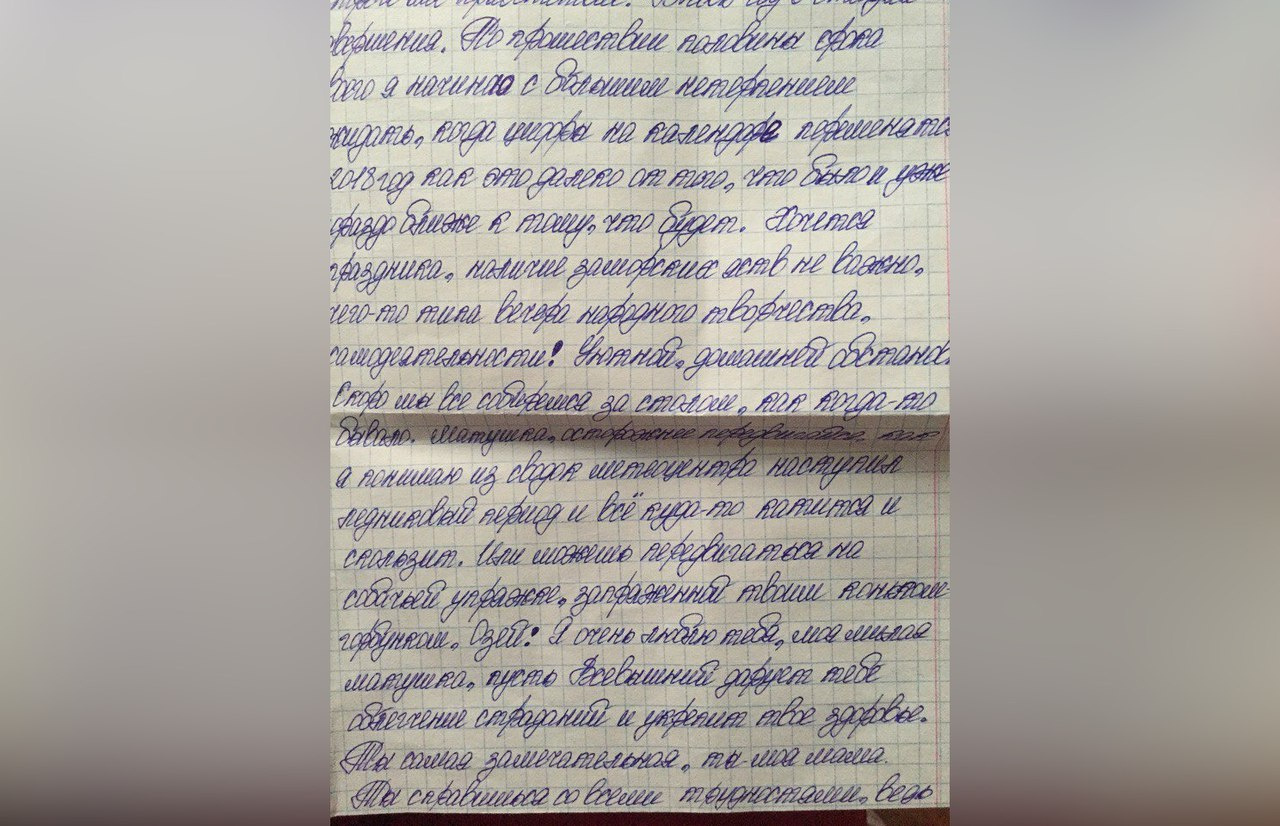 овершения. По прошествии половины срока
я начинаю с большим нетерпением
когда цифры на календаре переменятся
2018 год как это далеко от того, что было и уже
ближе к тому, что будет. Хочется
праздника, наличие заморских яств не важно,
чего-то типа вечера народного творчества,
самодеятельности! Уютной, домашней обстанов
Скоро мы все соберемся за столом, как когда-то
бывало. Матушка, осторожнее передвигайся, как
я понимаю из сводок метеоцентра наступил
ледниковый период и всё куда-то катится и
скользит. Или можешь передвигаться на
собачьей упряжке, запряженной твоим коньком-
горбунком, Озей! Я очень люблю тебя, моя милая
матушка, пусть Всевышний дарует тебе
облегчение страданий и укрепит твое здоровье.
Ты самая замечательная, ты моя мама.
Ты справишься со всеми трудностями, ведь